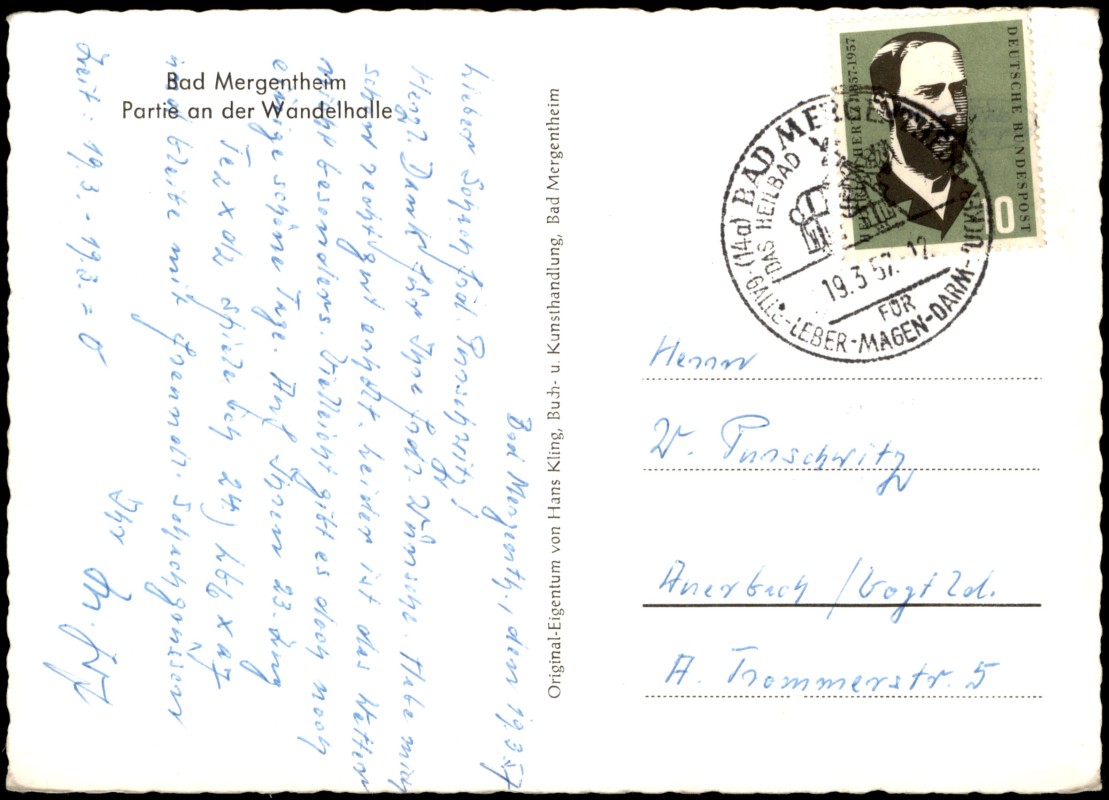 Bad Mergentheim
Partie an der Wandelhalle
Bad Mergenth., den 19.3.57
Lieber Schachfrd. Purschwitz!
Herzl. Dank für Ihre frdl. Wünsche. Habe mich
schon recht gut erholt. Leider ist das Wetter
nicht besonders. Vielleicht gibt es doch noch
einige schöne Tage. Auf Ihren 23. Zug
Te2xd2 spiele ich 24.) Lb6xa7
und bleibe mit freundl. Schachgrüssen
Ihr
Zeit: 19.3. - 19.3. = 0
Original-Eigentum von Hans Kling, Buch- u. Kunsthandlung, Bad Mergentheim
DEUTSCHE BUNDESPOST
1857-1957
(14a) BAD MERGENTHEIM
DAS HEILBAD
19.3.57.-12
FÜR
GALLE-LEBER-MAGEN-DARM-ZUCKER
Herrn
W. Purschwitz
Auerbach /Vogtld.
A. Trommerstr. 5